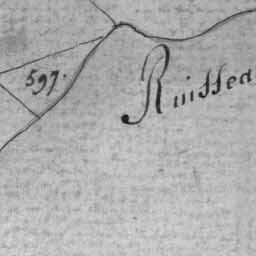 597.
Ruissea